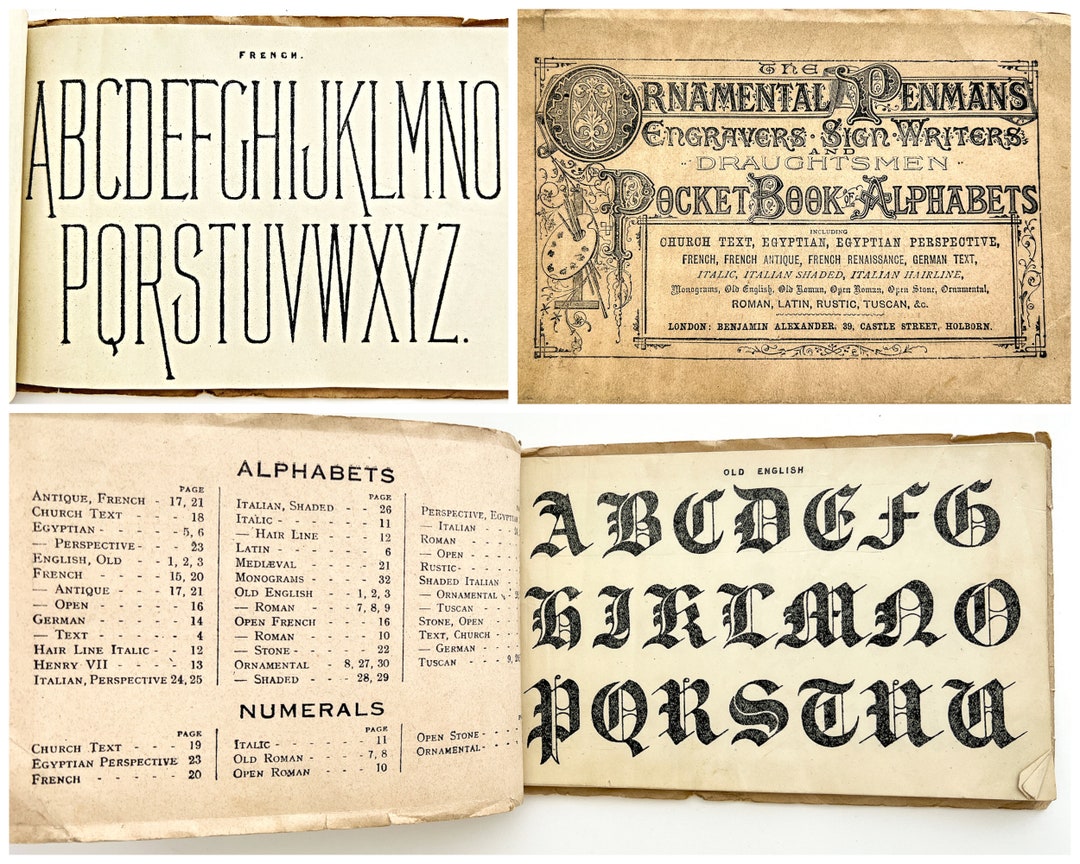 FRENCH.
ABCDEFGHIJKLMNO
PQRSTUVWXYZ.
THE
ORNAMENTAL PENMANS
ENGRAVERS · SIGN · WRITERS
AND
DRAUGHTSMEN
POCKET BOOK OF ALPHABETS
INCLUDING
CHURCH TEXT, EGYPTIAN, EGYPTIAN PERSPECTIVE,
FRENCH, FRENCH ANTIQUE, FRENCH RENAISSANCE, GERMAN TEXT,
ITALIC, ITALIAN SHADED, ITALIAN HAIRLINE,
Monograms, Old English, Old Roman, Open Roman, Open Stone, Ornamental,
ROMAN, LATIN, RUSTIC, TUSCAN, &c.
LONDON: BENJAMIN ALEXANDER, 39, CASTLE STREET, HOLBORN.
ALPHABETS
PAGE
ANTIQUE, FRENCH - 17, 21
CHURCH TEXT - - - 18
EGYPTIAN - - - - 5, 6
— PERSPECTIVE - - - 23
ENGLISH, OLD - - 1, 2, 3
FRENCH - - - - 15, 20
— ANTIQUE - - - 17, 21
— OPEN - - - - 16
GERMAN - - - - 14
— TEXT - - - - 4
HAIR LINE ITALIC - - 12
HENRY VII - - - 13
ITALIAN, PERSPECTIVE 24, 25
PAGE
ITALIAN, SHADED - - 26
ITALIC - - - - 11
— HAIR LINE - - - 12
LATIN - - - - 6
MEDLÆVAL - - - 21
MONOGRAMS - - - 32
OLD ENGLISH - - 1, 2, 3
— ROMAN - - - 7, 8, 9
OPEN FRENCH - - - 16
— ROMAN - - - 10
— STONE - - - - 22
ORNAMENTAL - 8, 27, 30
— SHADED - - - 28, 29
PERSPECTIVE, EGYPTIAN
— ITALIAN - -
ROMAN - - -
— OPEN - - -
RUSTIC - - -
SHADED ITALIAN -
— ORNAMENTAL -
— TUSCAN - -
STONE, OPEN -
TEXT, CHURCH - -
— GERMAN - -
TUSCAN - - - 9,
NUMERALS
PAGE
CHURCH TEXT - - - 19
EGYPTIAN PERSPECTIVE 23
FRENCH - - - - - 20
PAGE
ITALIC - - - - 11
OLD ROMAN - - - 7, 8
OPEN ROMAN - - - 10
OPEN STONE - - -
ORNAMENTAL - - -
OLD ENGLISH
ABCDEFG
HIKLMNO
PQRSTUV